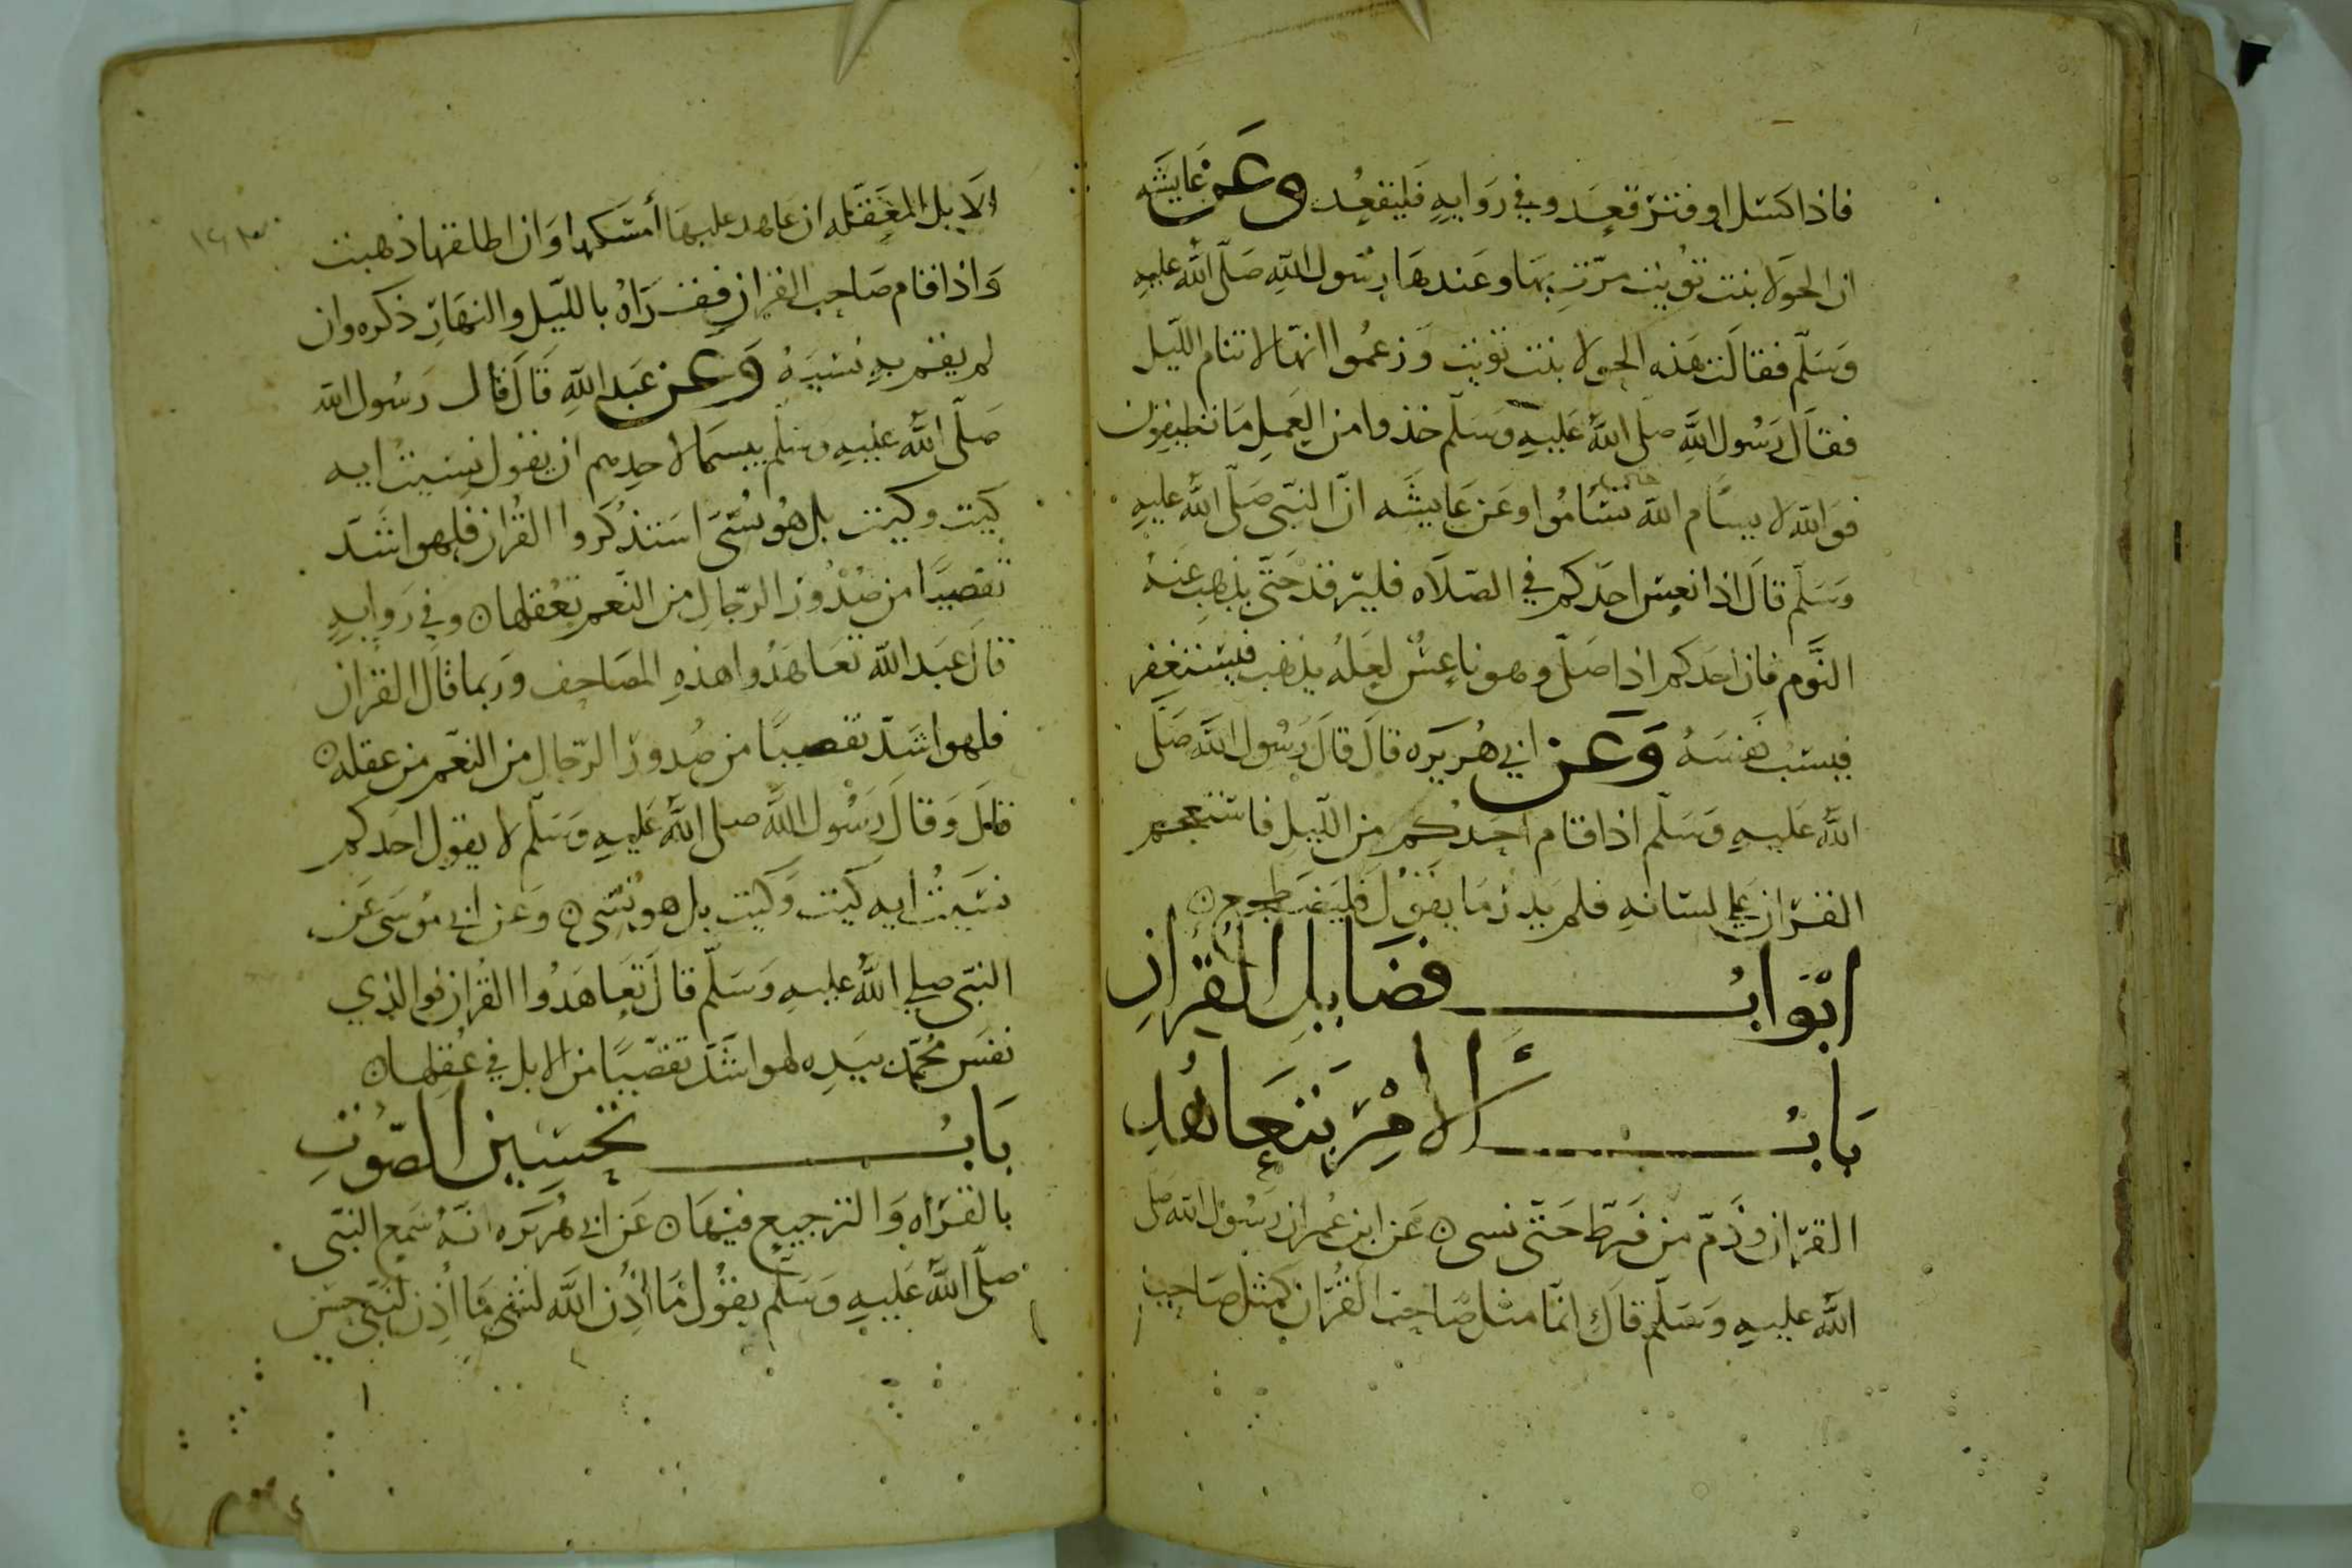 فاذا كسل او فتر قعد وفي روايه فليقعد وعن عايشه
ان الحولا بنت تويت مرت بها وعندها رسول الله صلى الله عليه
وسلم فقالت هذه الحولا بنت تويت وزعموا انها لا تنام الليل
فقال رسول الله صلى الله عليه وسلم خذوا من العمل ما تطيقون
فوالله لا يسام الله حتى تسأموا وعن عايشه ان النبي صلى الله عليه
وسلم قال اذا نعس احدكم في الصلاه فليرقد حتى يذهب عنه
النوم فان احدكم اذا صلى وهو ناعس لعله يذهب يستغفر
فيسب نفسه وعن ابي هريره قال قال رسول الله صلى
الله عليه وسلم اذا قام احدكم من الليل فاستعجم
القران على لسانه فلم يدر ما يقول فليضطجع
ابواب فضايل القران
باب الامر بتعاهد
القران وذم من فرط حتى نسى عن ابن عمر ان رسول الله صلى
الله عليه وسلم قال انما مثل صاحب القران كمثل صاحب
الابل المعقله ان عاهد عليها أمسكها وان اطلقها ذهبت
واذا قام صاحب القران فقراه بالليل والنهار ذكره وان
لم يقم به نسيه وعن عبد الله قال قال رسول الله
صلى الله عليه وسلم بيسما لاحدهم ان يقول نسيت ايه
كيت وكيت بل هو نسى استذكروا القران فلهو اشد
تفصيا من صدور الرجال من النعم بعقلها وفي روايه
قال عبد الله تعاهدوا هذه المصاحف وربما قال القران
فلهو اشد تفصيا من صدور الرجال من النعم من عقله
قال وقال رسول الله صلى الله عليه وسلم لا يقول احدكم
نسيت ايه كيت وكيت بل هو نسى وعن ابي موسى عن
النبي صلى الله عليه وسلم قال تعاهدوا القران فوالذي
نفس محمد بيده لهو اشد تفصيا من الابل في عقلها
باب تحسين الصوت
بالقراه والترجيع فيها عن ابي هريره انه سمع النبي
صلى الله عليه وسلم يقول ما أذن الله لشى ما أذن لنبي حسن